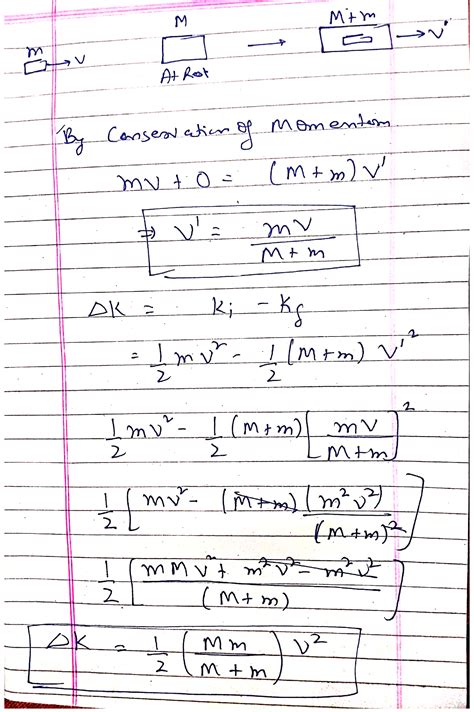 M
M+m
m → v
→
→ v'
At Rest
By Conservation of Momentum
mv + 0 = (M+m) v'
⇒ v' = mv / M+m
ΔK = Ki - Kf
= 1/2 mv² - 1/2 (M+m) v'²
1/2 mv² - 1/2 (M+m) [mv / M+m]²
1/2 [mv² - (M+m) (m²v²) / (M+m)²]
1/2 [mMv² + m²v² - m²v² / (M+m)]
ΔK = 1/2 (Mm / M+m) v²